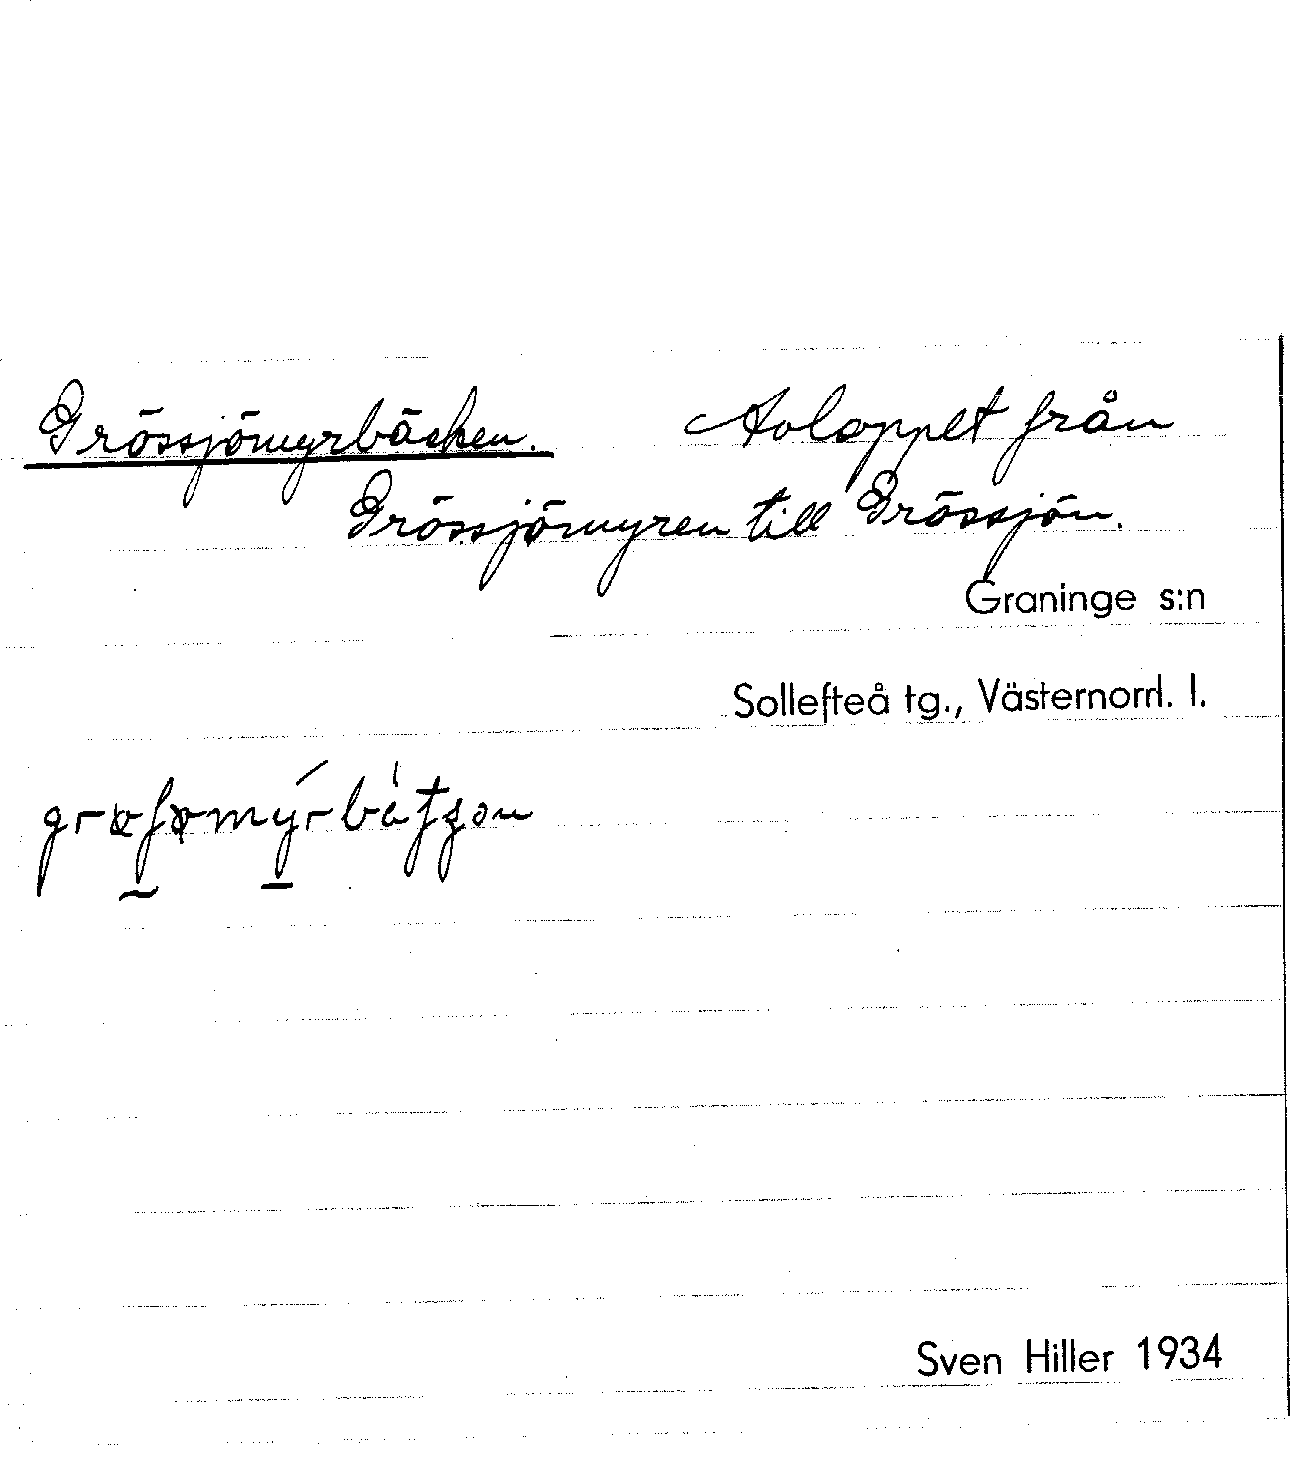 Grössjömyrbäcken. Avloppet från
Grössjömyren till Grössjön.
Graninge s:n
Sollefteå tg., Västernorrl. l.
Sven Hiller 1934